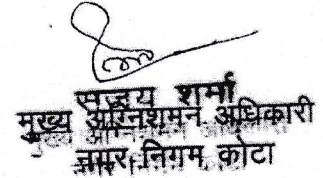 सञ्जय शर्मा
मुख्य अग्निशमन अधिकारी
नगर निगम, कोटा